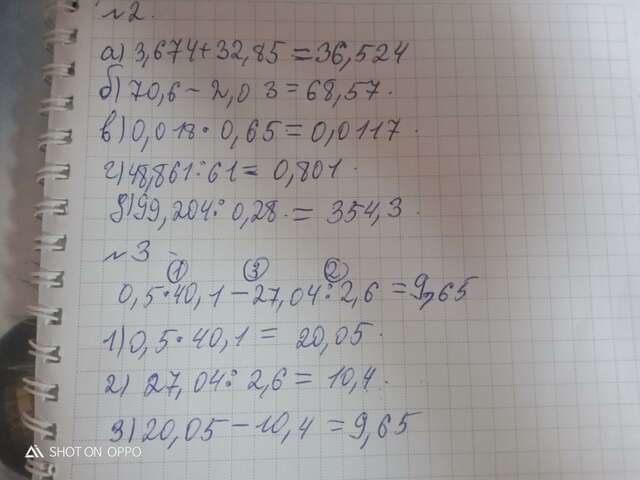 №2.
а) 3,674+32,85=36,524
б) 70,6-2,03=68,57.
в) 0,018·0,65=0,0117.
г) 48,861:61=0,801.
д) 99,204:0,28.=354,3.
№3
① ③ ②
0,5·40,1-27,04:2,6=9,65
1) 0,5·40,1=20,05.
2) 27,04:2,6=10,4.
3) 20,05-10,4=9,65
SHOT ON OPPO